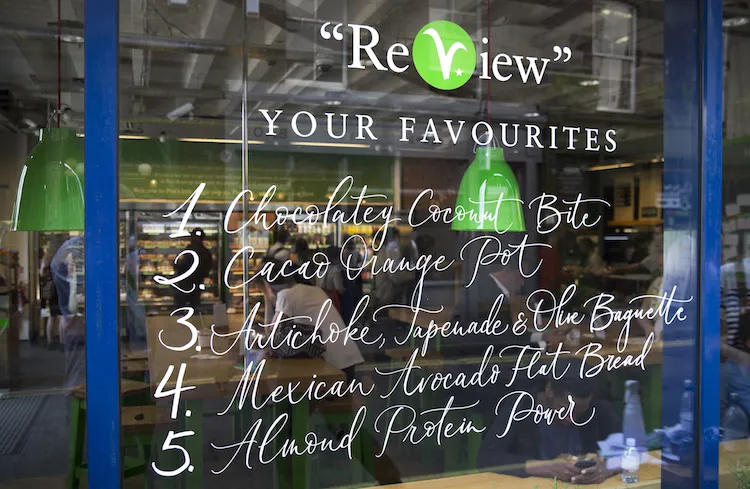 “ReView”
YOUR FAVOURITES
1. Chocolatey Coconut Bite
2. Cacao Orange Pot
3. Artichoke, Tapenade & Olive Baguette
4. Mexican Avocado Flat Bread
5. Almond Protein Power